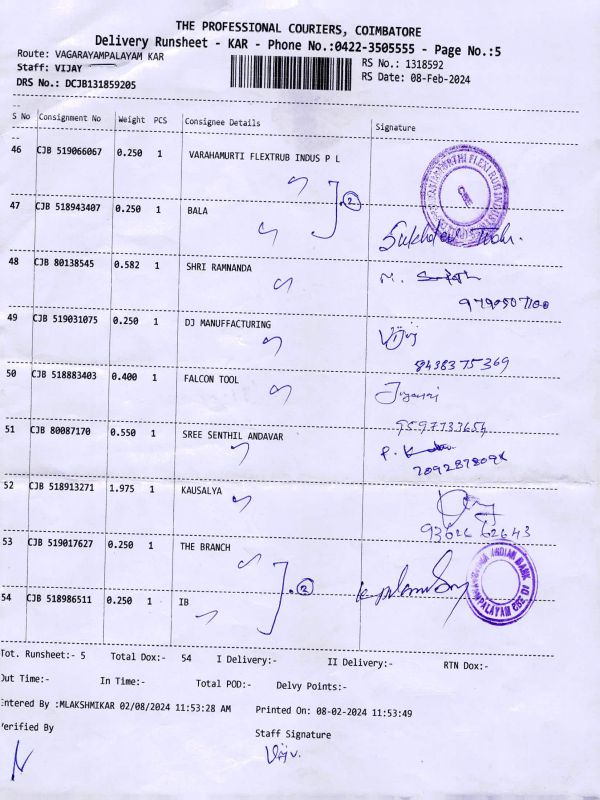 THE PROFESSIONAL COURIERS, COIMBATORE
Delivery Runsheet - KAR - Phone No.:0422-3505555 - Page No.:5
Route: VAGARAYAMPALAYAM KAR
RS No.: 1318592
Staff: VIJAY
RS Date: 08-Feb-2024
DRS No.: DCJB131859205
S No Consignment No Weight PCS Consignee Details Signature
46 CJB 519066067 0.250 1 VARAHAMURTI FLEXTRUB INDUS P L
2
47 CJB 518943407 0.250 1 BALA
48 CJB 80138545 0.582 1 SHRI RAMNANDA
M.
9790507100
49 CJB 519031075 0.250 1 DJ MANUFFACTURING
Vijay
8438375369
50 CJB 518883403 0.400 1 FALCON TOOL
9597733654
51 CJB 80087170 0.550 1 SREE SENTHIL ANDAVAR
P.
52 CJB 518913271 1.975 1 KAUSALYA
93626 62643
53 CJB 519017627 0.250 1 THE BRANCH
2
INDIAN BANK
54 CJB 518986511 0.250 1 IB
Tot. Runsheet:- 5 Total Dox:- 54 I Delivery:- II Delivery:- RTN Dox:-
Out Time:- In Time:- Total POD:- Delvy Points:-
Entered By :MLAKSHMIKAR 02/08/2024 11:53:28 AM Printed On: 08-02-2024 11:53:49
Verified By Staff Signature